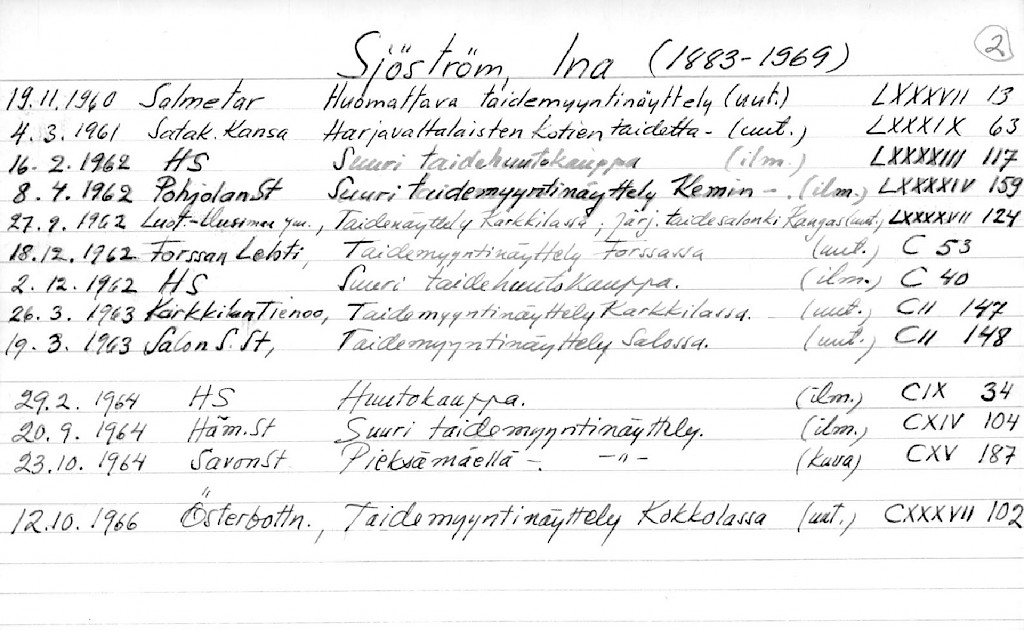 Sjöström, Ina (1883-1969) 2
19.11.1960 Salmetar Huomattava taidemyyntinäyttely (uut.) LXXXVII 13
4.3.1961 Satak. Kansa Harjavaltalaisten kotien taidetta - (uut.) LXXXIX 63
16.2.1962 HS Suuri taidehuutokauppa (ilm.) LXXXXIII 117
8.4.1962 PohjolanSt Suuri taidemyyntinäyttely Kemin - (ilm.) LXXXXIV 159
27.9.1962 Luot-Uusimaa ym., Taidenäyttely Karkkilassa, järj. taidesalonki Kangas (uut.) LXXXXVII 124
18.12.1962 Forssan Lehti, Taidemyyntinäyttely Forssassa (uut.) C 53
2.12.1962 HS Suuri taidehuutokauppa. (ilm.) C 40
26.3.1963 KarkkilanTienoo, Taidemyyntinäyttely Karkkilassa. - (uut.) CII 147
19.3.1963 Salon S.St, Taidemyyntinäyttely Salossa. (uut.) CII 148
29.2.1964 HS Huutokauppa. (ilm.) CIX 34
20.9.1964 Häm.St Suuri taidemyyntinäyttely. (ilm.) CXIV 104
23.10.1964 SavonSt Pieksämäellä -. -"- (kuva) CXV 187
12.10.1966 Österbottn., Taidemyyntinäyttely Kokkolassa (uut.) CXXXVII 102